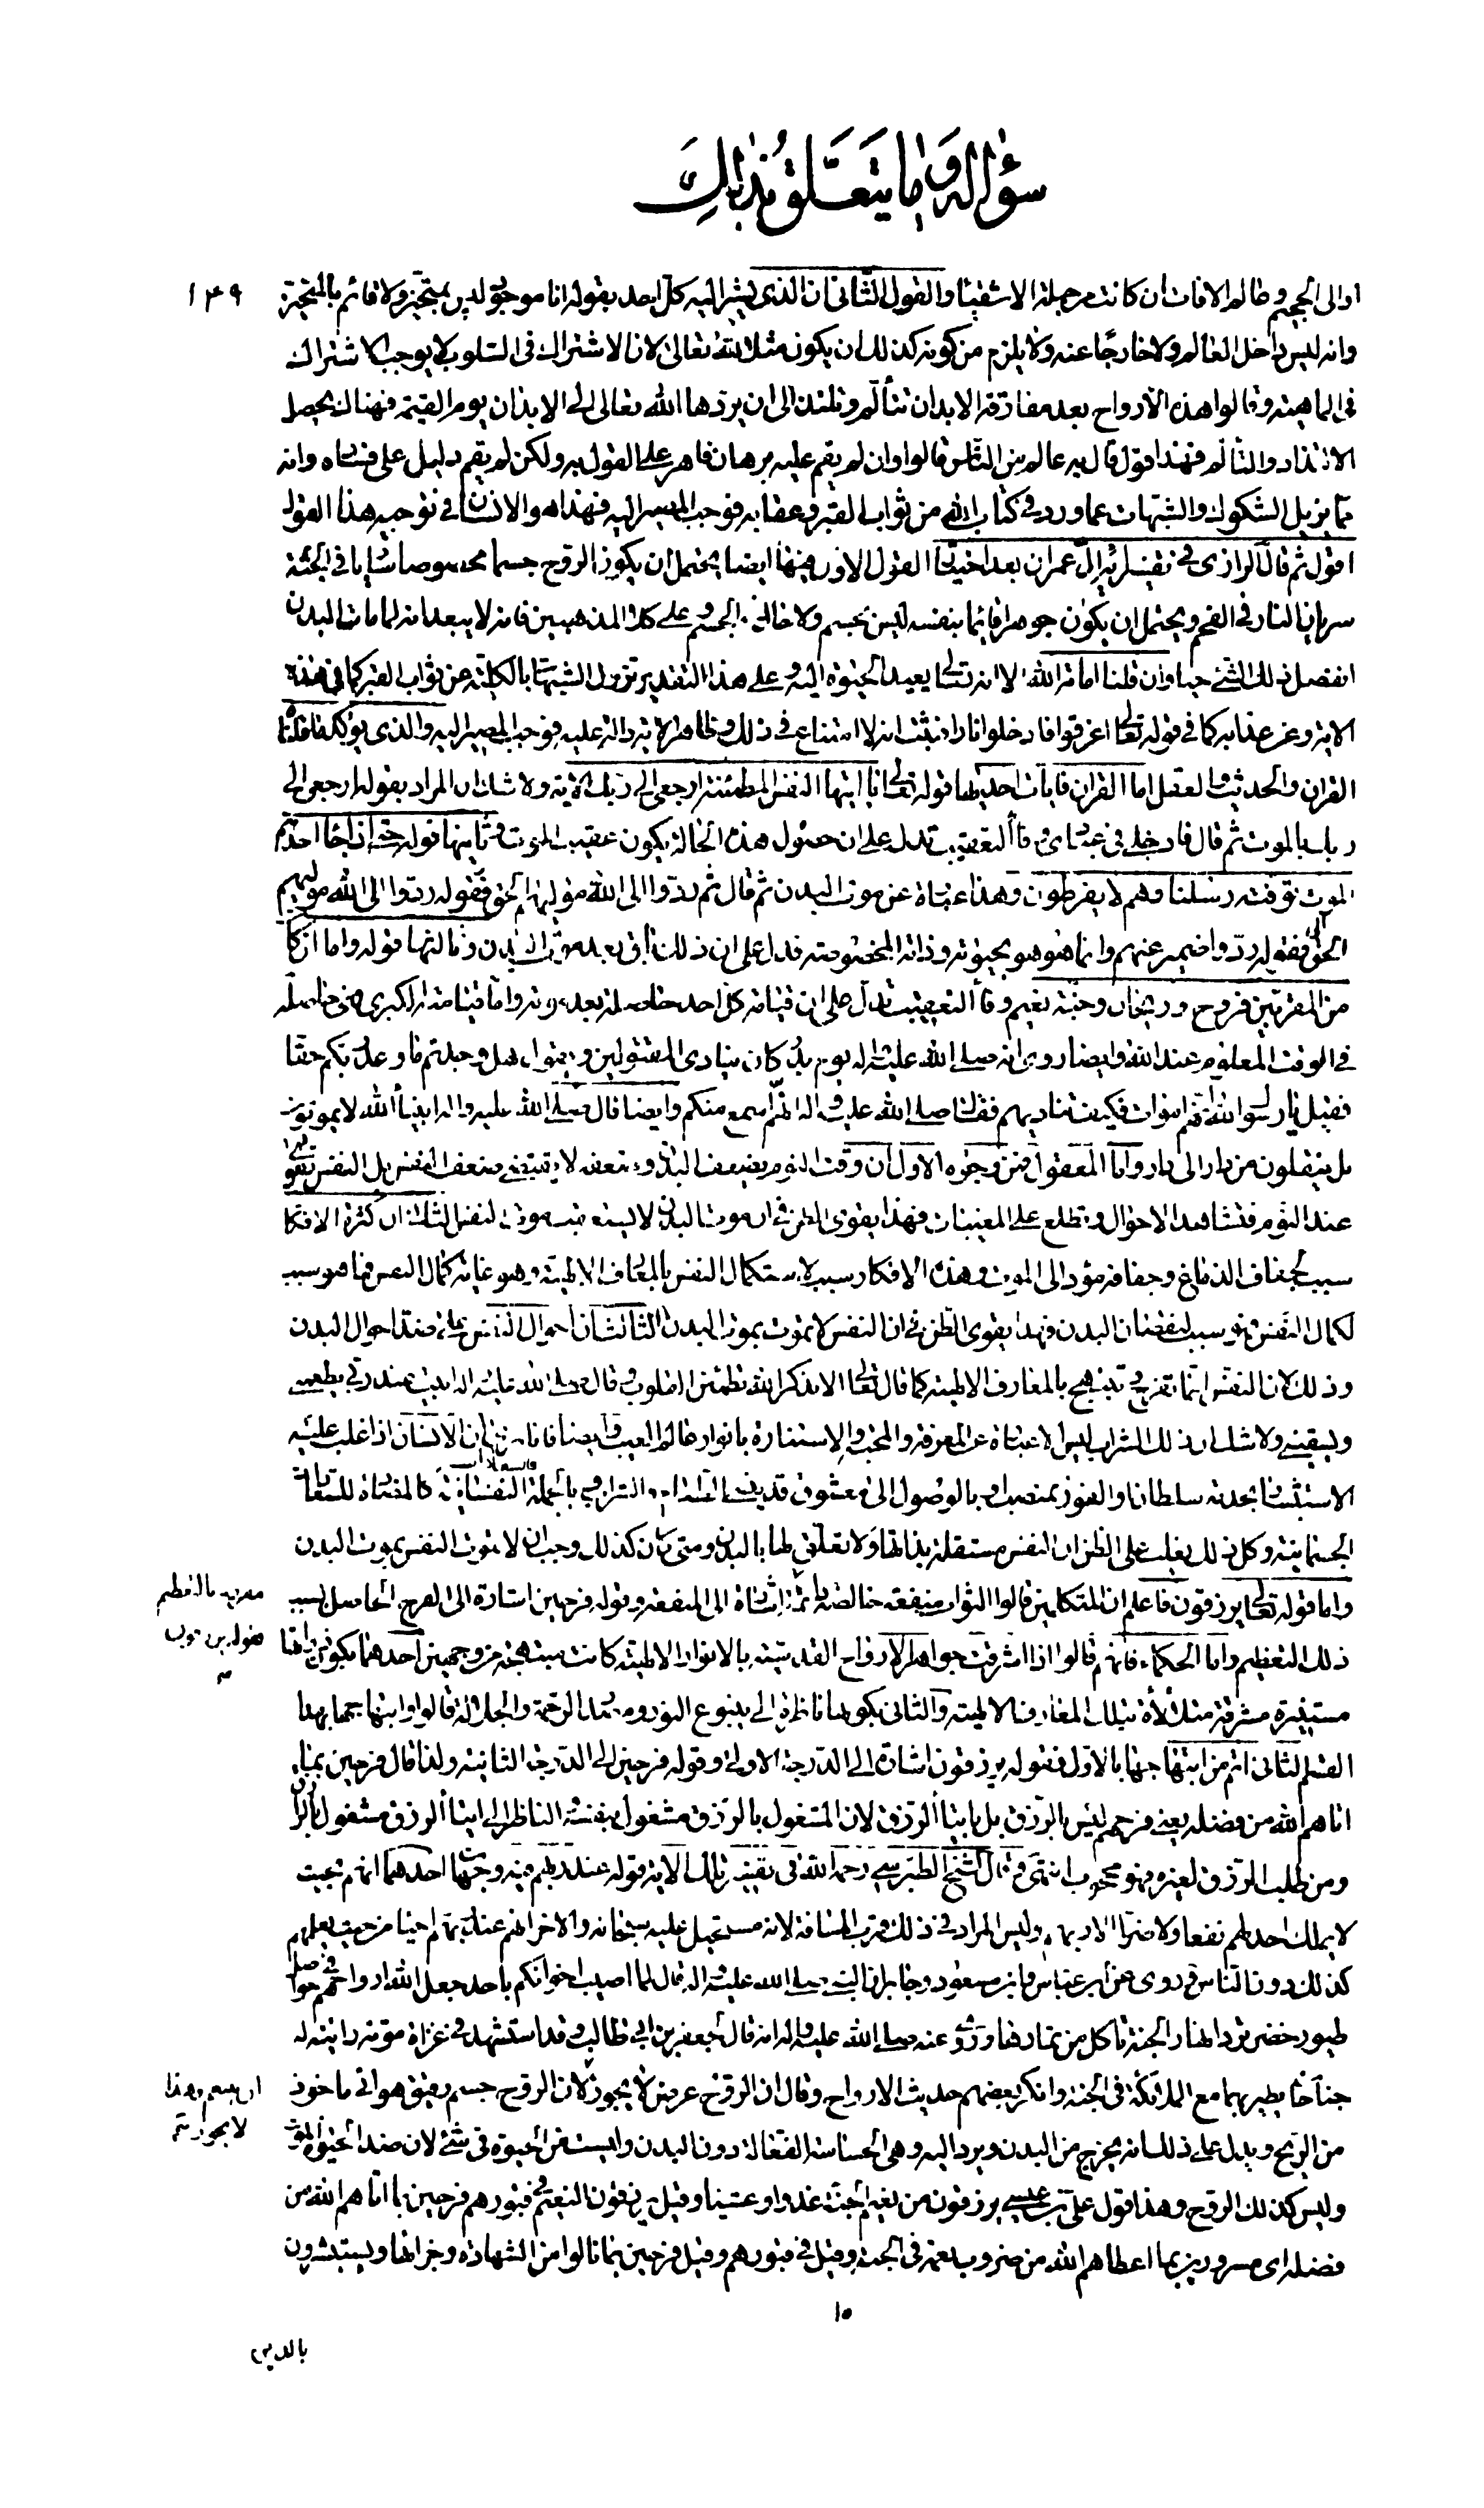 سؤاله وما يتعلق بذلك
١٤٩
او الى الجحيم وعالم الافات ان كانت من جملة الاشقياء والقول الثانى ان الذى يشير اليه كل احد بقوله انا موجود ليس بمتحيز ولا قائم بالمتحيز
وانه ليس داخل العالم ولا خارجا عنه ولا يلزم من كونه كذلك ان يكون مثل الله تعالى لان الاشتراك فى السلوب لا يوجب الاشتراك
فى الماهية وقالوا هذه الارواح بعد مفارقة الابدان تتألم وتلتذ الى ان يردها الله تعالى الى الابدان يوم القيمة فهناك يحصل
الالتذاذ والتألم فهذا قول قال به عالم من الناس قالوا وان لم يقم عليه برهان قاهر على القول به ولكن لم يقم دليل على فساده وانه
مما يزيل الشكوك والشبهات عما ورد فى كتاب الله من ثواب القبر وعقابه فوجب المصير اليه فهذا هو الاشارة فى توجيه هذا القول
اقول ثم قال الرازى فى تفسير اية ال عمران بعد اختيار القول الاول فيها ايضا يحتمل ان يكون الروح جسما مخصوصا ساريا فى الجثة
سريان النار فى الفحم ويحتمل ان يكون جوهرا قائما بنفسه ليس بجسم ولا حال فى الجسم وعلى كلا المذهبين فانه لا يبعد انه لما مات البدن
انفصل ذلك الشئ حيا وان قلنا اماته الله الا انه تعالى يعيد الحيوة اليه وعلى هذا التقدير تزول الشبهات بالكلية عن ثواب القبر كما فى هذه
الاية وعن عذابه كما فى قوله تعالى اغرقوا فادخلوا نارا فثبت انه لا امتناع فى ذلك وظاهر الاية دالة عليه فوجب المصير اليه والذى يؤكد ما قلناه
القران والحديث والعقل اما القران فايات احديها قوله تعالى يا ايتها النفس المطمئنة ارجعى الى ربك الاية ولا شك ان المراد بقوله ارجعى الى
ربك بالموت ثم قال فادخلى فى عبادى وفاء التعقيب تدل على ان حصول هذه الحالة يكون عقيب الموت وثانيها قوله حتى اذا جاء احدكم
الموت توفته رسلنا وهم لا يفرطون وهذا عبارة عن موت البدن ثم قال ثم ردوا الى الله موليهم الحق فقوله ردوا الى الله موليهم
الحق فقوله ردوا ضمير عنهم وانما هو هو بحيوته وذاته المخصوصة فدل على ان ذلك باق بعد موت البدن وثالثها قوله واما ان كان
من المقربين فروح وريحان وجنة نعيم وفاء التعقيب تدل على ان قيامة كل احد حاصلة بعد موته واما قيامة الكبرى فهى حاصلة
فى الوقت المعلوم عند الله وايضا روى انه صلى الله عليه واله يوم بدر كان ينادى المقتولين ويقول هل وجدتم ما وعد ربكم حقا
فقيل يا رسول الله انهم اموات فكيف تناديهم فقال صلى الله عليه واله انهم اسمع منكم وايضا قال صلى الله عليه واله انبياء الله لا يموتون
بل ينقلون من دار الى دار واما المعقول فمن وجوه الاول ان وقت النوم يضعف البدن وضعفه لا يقتضى ضعف النفس بل النفس تقوى
عند النوم فتشاهد الاحوال وتطلع على المغيبات فهذا يقوى الظن فى ان موت البدن لا يستعقب موت النفس الثانى ان كثرة الافكار
سبب لجفاف الدماغ وجفافه مؤد الى الموت وهذه الافكار سبب لاستكمال النفس بالمعارف الالهية وهو غاية كمال النفس فما هو سبب
لكمال النفس فهو سبب لنقصان البدن فهذا يقوى الظن فى ان النفس لا تموت بموت البدن الثالث ان احوال النفس على ضد احوال البدن
وذلك لان النفس انما تفرح وتبتهج بالمعارف الالهية كما قال تعالى الا بذكر الله تطمئن القلوب وقال صلى الله عليه واله ابيت عند ربى يطعمنى
ويسقينى ولا شك ان ذلك الشراب ليس الا عبارة عن المعرفة والمحبة والاستنارة بانوار عالم الغيب وايضا فانا نرى ان الانسان اذا غلب عليه
الاستبشار بخدمة سلطان او الفوز بمنصب او بالوصول الى معشوق قد ينسى الطعام والشراب وبالجملة فالسعادات النفسانية كالمضادة للسعادات
الجسمانية وكل ذلك يغلب على الظن ان النفس مستقلة بذاتها ولا تعلق لها بالبدن ومتى كان كذلك وجب ان لا تموت النفس بموت البدن
واما قوله تعالى يرزقون فاعلم ان المتكلمين قالوا الثواب منفعة خالصة دائمة اشارة الى المنفعة وقوله فرحين اشارة الى الفرح الحاصل بسبب
مقرونة بالتعظيم
فقوله يرزقون
ذلك التعظيم واما الحكماء فانهم قالوا اذا اشرقت جواهر الارواح القدسية بالانوار الالهية كانت مبتهجة من وجهين احدهما بكون ذاتها
مستنيرة مشرقة متلألأة بتلك المعارف الالهية والثانى بكونها ناظرة الى ينبوع النور ومصدر الرحمة والجلالة قالوا وابتهاجها بهذا
القسم الثانى اتم من ابتهاجها بالاول فقوله يرزقون اشارة الى الدرجة الاولى وقوله فرحين الى الدرجة الثانية ولذا قال فرحين بما
اتاهم الله من فضله يعنى فرحهم ليس بالرزق بل بايتاء الرزق لان المشغول بالرزق مشغول بنفسه الناظر الى ايتاء الرزق مشغول بالرازق
ومن طلب الرزق لغيره فهو محجوب انتهى وقال الشيخ الطبرسى رحمه الله فى تفسير تلك الاية قوله عند ربهم فيه وجهان احدهما انهم بحيث
لا يملك احد لهم نفعا ولا ضرا الا ربهم وليس المراد فى ذلك قرب المسافة لانه مستحيل عليه سبحانه والاخر انهم عند ربهم احياء من حيث يعلمهم
كذلك دون الناس وروى عن ابن عباس وابن مسعود وجابر ان النبى صلى الله عليه واله قال لما اصيب اخوانكم باحد جعل الله ارواحهم فى حواصل
طيور خضر ترد انهار الجنة وتاكل من ثمارها وروى عنه صلى الله عليه واله انه قال لجعفر بن ابى طالب وقد استشهد فى غزاة موتة رايته له
جناحان يطير بهما مع الملائكة فى الجنة وانكر بعضهم حديث الارواح وقال ان الروح عرض لا يجوز لان الروح جسم رقيق هوائى ماخوذ
ان يتنعم وهذا
لا يجوز
من الريح ويدل على ذلك انه يخرج من البدن ويرد اليه وهى الحساسة الفعالة دون البدن وليست من الحيوة فى شئ لان ضد الحيوة الموت
وليس كذلك الروح وهذا قول على بن عيسى يرزقون من نعيم الجنة غدوا وعشيا وقيل يرزقون النعيم فى قبورهم فرحين بما اتاهم الله من
فضله اى مسرورين بما اعطاهم الله من ضروب نعمه فى الجنة وقيل فى قبورهم وقيل فرحين بما نالوا من الشهادة وجزائها ويستبشرون
١٥
بالذين